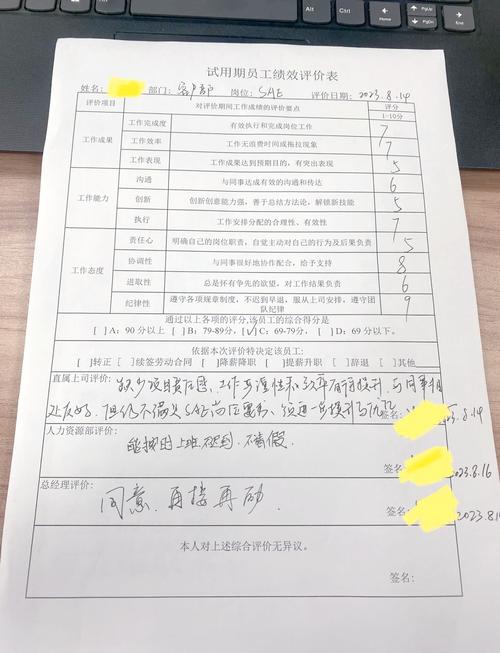 试用期员工绩效评价表
姓名: 部门: 客户部 岗位: SAE 评价日期: 2023.8.14
评价项目 对评价期间工作成绩的评价要点 评分
1-10分
工作成果 工作完成度 有效执行和完成岗位工作 7
工作效率 工作无浪费时间或拖拉现象 7
工作表现 工作成果达到预期目的,有突出表现 5
工作能力 沟通 与同事达成有效的沟通和传达 6
创新 创新创意能力强,善于总结方法论,解锁新技能 5
执行 工作安排分配的合理性、有效性 7
工作态度 责任心 明确自己的岗位职责,自觉主动对自己的行为及后果负责 5
协调性 与同事很好地协作配合,给予支持 8
进取性 总是怀有争先的欲望,对工作结果负责 6
纪律性 遵守各项规章制度,不迟到早退,服从上司安排,遵守团队纪律 9
通过以上各项的评分,该员工的综合得分是
[ ]A:90分以上 [ ]B:79-89分,[√]C:69-79分,[ ]D:69分以下。
依据本次评价特决定该员工:
[ ]转正 [ ]续签劳动合同 [ ]降薪降职 [ ]提薪升职 [ ]辞退 [ ]其他
直属上司评价: 缺少项目责任感,工作 性和效率有待提升,与同事相
处友好,但仍不满足SAE岗位要求,须进一步提升与优化 签名: 8.14
人力资源部评价: 能按时上班,不迟到,不请假
签名: 2023.8.16
总经理评价: 同意,再接再励
签名: 2023.8.1
本人对上述综合评价无异议。
签名: